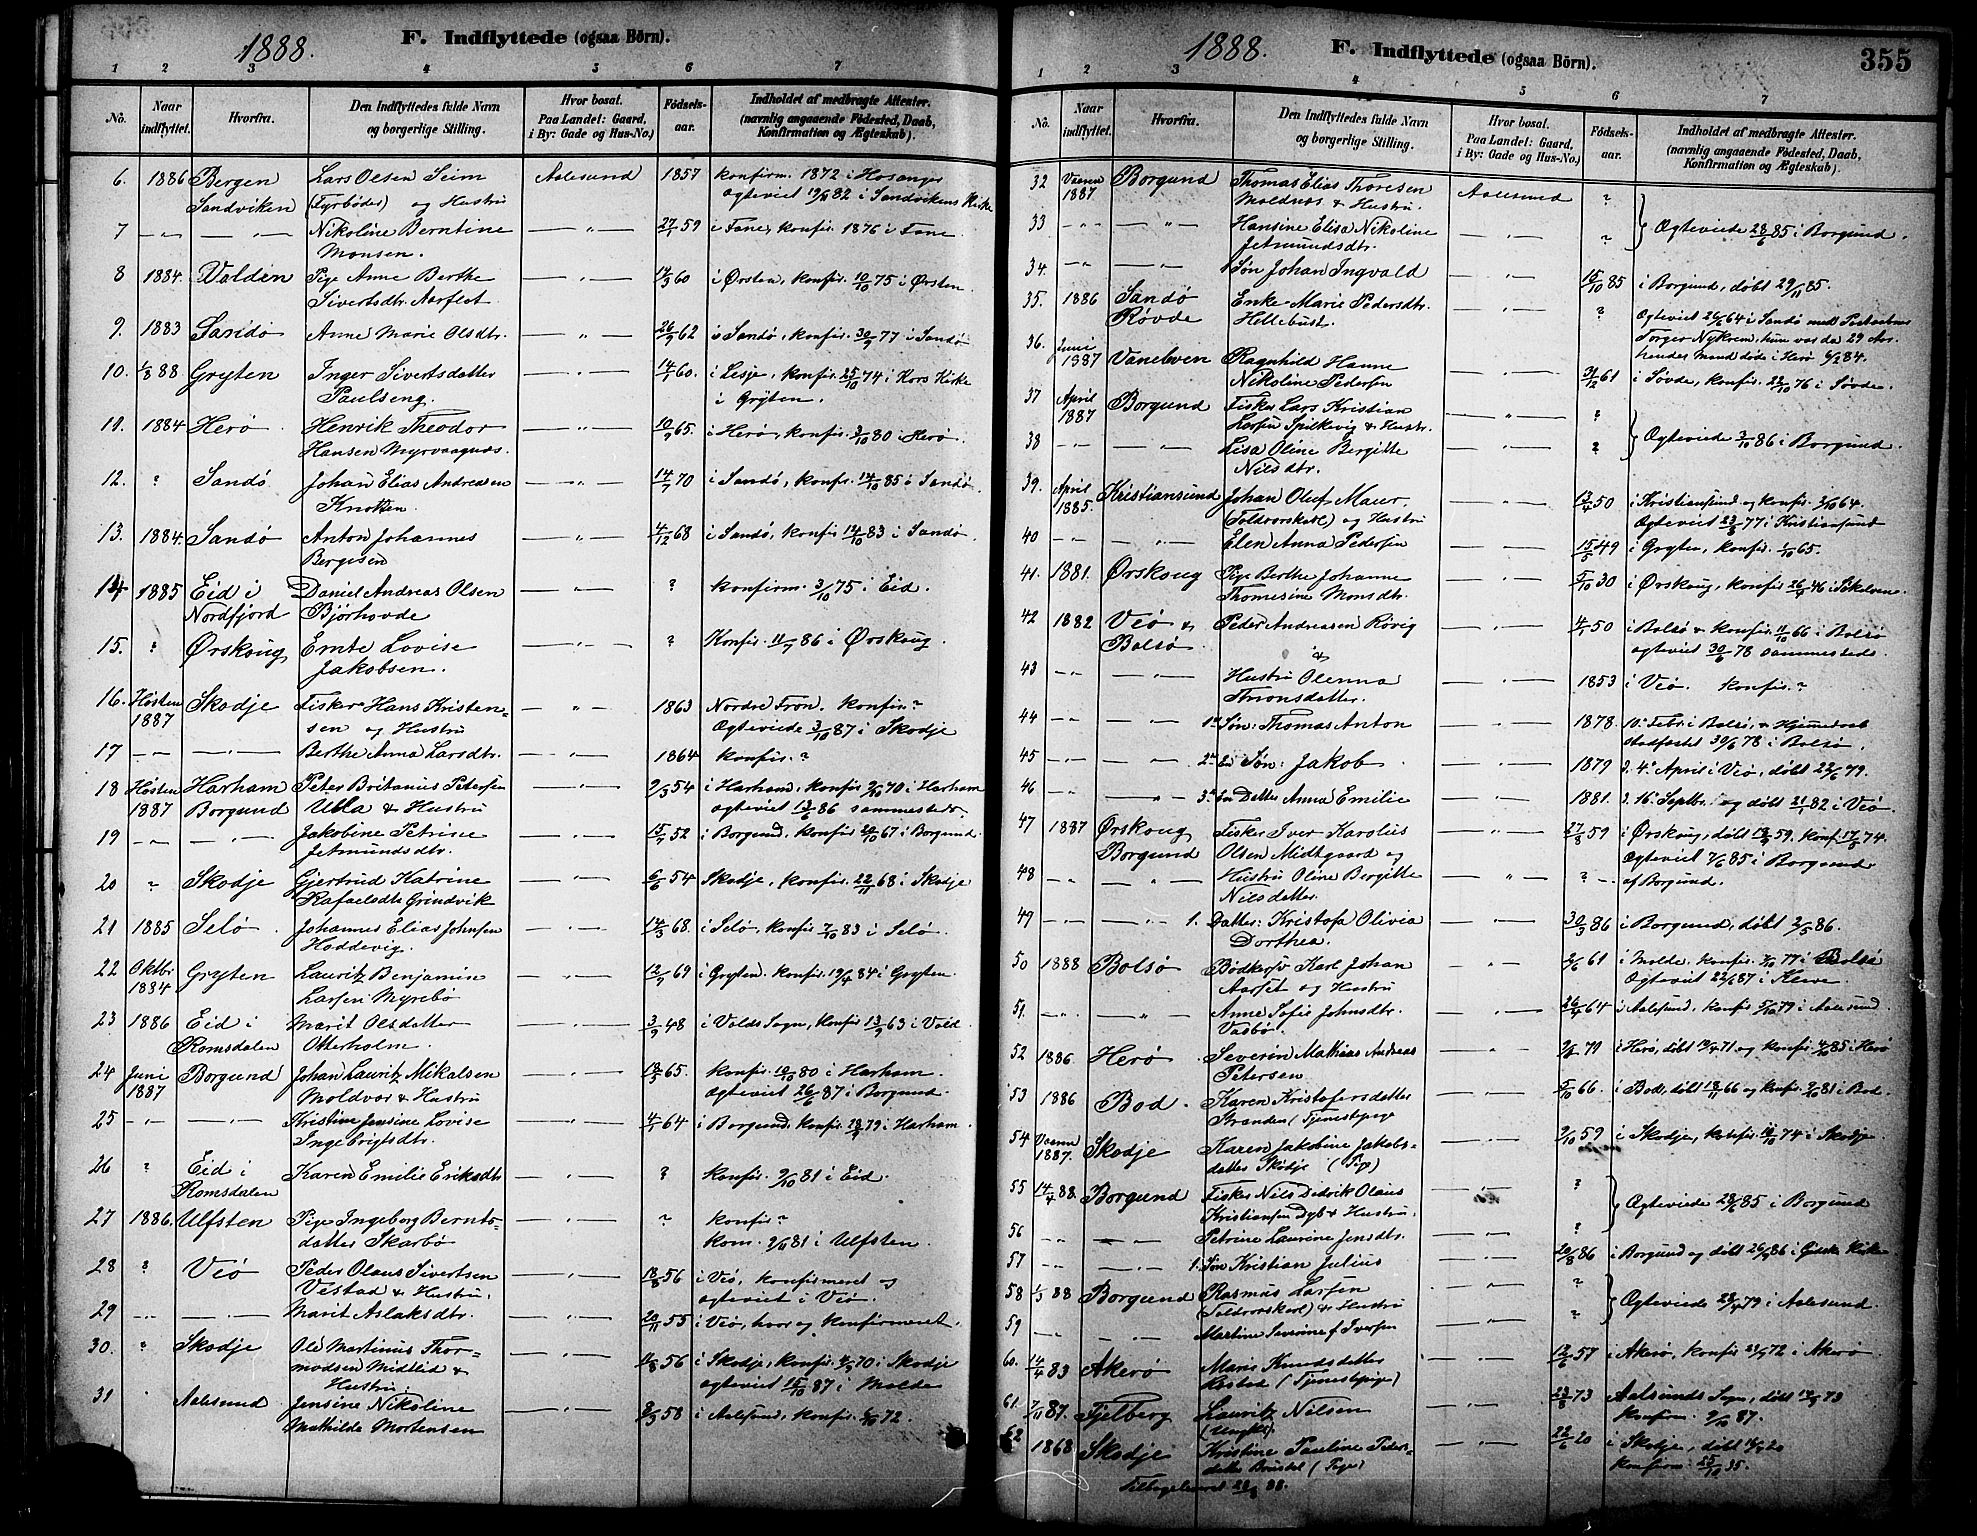 1888.
F. Indflyttede (ogsaa Börn).
1 2 3 4 5 6 7
No.
Naar indflyttet.
Hvorfra.
Den Indflyttedes fulde Navn og borgerlige Stilling.
Hvor bosat. Paa Landet: Gaard, i By: Gade og Hus-No.)
Födsels-aar.
Indholdet af medbragte Attester. (navnlig angaaende Födested, Daab, Konfirmation og Ægteskab).
6. 1886 Bergen Lars Olsen Seim Aalesund 1857 konfirm. 1872 i Hosanger
Sandviken (Fyrböder) og Hustru ægteviet 82 i Sandvikens Kirke
7 Nikoline Berntine 27/1 59 i Fane, konfir. 1876 i Fane
Monsen.
8 1884. Volden Pige Anne Berthe 60 i Ørsten, konfir. 10/10 75 i Ørsten.
Sivertsdtr. Aarflot
9. 1883 Sandö Anne Marie Olsdtr. 26/9 62 i Sandö, konfir. 30/9 77 i Sandö
10. 1/8 88 Gryten Inger Sivertsdatter 14/1 60. i Lesje, konfir. 25/10 74 i Kors Kirke
Paulseng. i Gryten.
11. 1884 Herö Henrik Theodor 10/9 65. i Herö, konfir. 3/10 80 i Herö.
Hansen Myrvaagnæs.
12. ? Sandö Johan Elias Andreasen 14/7 70 i Sandö, konfir. 14/10 85 i Sandö.
Knotten.
13. 1884. Sandö Anton Johannes 4/12 68 i Sandö, konfir. 14/10 83 i Sandö.
Bergesen
14 1885 Eid i Daniel Andreas Olsen ? konfirm. 3/10 75 i Eid.
Nordfjord Björhovde
15. ? Ørskoug Emte Lovise ? Konfir. 11/7 86 i Ørskoug.
Jakobsen.
16. Hösten Skodje Fisker Hans Kristen- 1863 Nordre Fron. konfir. ?
1887 sen og Hustru Ægteviede 3/10 87 i Skodje
17 Berthe Anna Larsdtr. 1864 konfir. ?
18 Hösten Harham Peter Britanius Petersen 2/3 54 i Harham, konfir. 2/10 70 i Harham
1887 Borgund Ulla & Hustru ægteviet 13/6 86 sammesteds.
19 Jakobine Petrine 15/7 52 i Borgund, konfir. 67 i Borgund.
Jetmundsdtr.
20 ? Skodje Gjertrud Katrine 6/6 54 Skodje, konfir. 22/11 68 i Skodje
Rafaelsdtr Grindvik
21 1885 Selö Johannes Elias Johnsen 14/3 68. i Selö, konfir. 7/10 83 i Selö.
Hoddevig.
22 Oktbr Gryten Lauritz Benjamin 12/7 69 i Gryten. konfir. 19/4 84 i Gryten.
1884 Larsen Myrebö
23 1886 Eid i Marit Olsdatter 3/9 48 i Volds Sogn, konfir. 13/9 63 i Vold.
Romsdalen Otterholm.
24 Juni Borgund Johan Lauritz Mikalsen 18/5 65. konfir. 10/10 80 i Harham.
1887 Moldvær & Hustru ægteviet 26/6 87 i Borgund.
25 Kristine Jensine Lovise 4/1 64 i Borgund, konfir. 79 i Harham.
Ingebrigtsdtr.
26 ? Eid i Karen Emilie Eriksdtr ? konfir. 9/10 81 i Eid.
Romsdalen
27 1886. Ulfsten Pige Ingeborg Bernts- ? konfir. ?
datter Skarbö kom. 81 i Ulfsten.
28 ? Veö Peder Olaus Sivertsen 18/8 56 i Veö, konfirmeret og
Vestad & Hustru. ægteviet i Veö.
29 Marit Aslaksdtr. 20/11 55 i Veö, hvor og konfirmeret.
30. " Skodje Ole Martinus Thor- 56 i Skodje, konfir. 70 i Skodje
modsen Midtlid & ægteviet 15/10 87 i Molde
Hustru.
31 Aalesund Jensine Nikoline 58 i Aalesund, konfir. 72.
Mathilde Mortensen
1888.
F. Indflyttede (ogsaa Börn).
355
1 2 3 4 5 6 7
No.
Naar indflyttet.
Hvorfra.
Den Indflyttedes fulde Navn og borgerlige Stilling.
Hvor bosat. Paa Landet: Gaard, i By: Gade og Hus-No.)
Födsels-aar.
Indholdet af medbragte Attester. (navnlig angaaende Födested, Daab, Konfirmation og Ægteskab).
32 Vaaren Borgund Thomas Elias Thoresen Aalesund ?
1887 Moldnæs & Hustru.
33 Hansine Elisa Nikoline ? Ægteviede 28/6 85 i Borgund.
Jetmundsdtr.
34. Sön Johan Ingvald 15/10 85 i Borgund, döbt 29/11 85.
35. 1886 Sandö Enke Marie Pedersdtr. ? Ægteviet 26/6 64 i Sandö med
Røvde Hellebust. Torger Nykrem, hun var da 29 Aar.
hendes Mand döde i Herö 84.
36. Juni 1887 Vanelven Ragnhild Hanne 31/12 61 i Søvde, konfir. 22/10 76 i Søvde.
Nikoline Pedersen
37 April Borgund Fisker Lars Kristian ?
1887 Larsen Spilkevig & Hustr.
38 Lisa Oline Bergitte ? Ægteviede 3/10 86 i Borgund.
Nilsdtr.
39. April Kristiansund Johan Oluf Mauer, 13/4 50 i Kristiansund og konfir. 2/10 64.
1885. (Toldvorskarl) og Hustru Ægteviet 23/3 77 i Kristiansund
40 Elen Anna Pedersen 15/5 49 i Gryten, konfir. 1/10 65.
41. 1881. Ørskoug Pige Berthe Johanne 5/10 30 i Ørskoug, konfir. 26/4 46 i
Thomesine Monsdtr.
42 1882 Veö & Peder Andreasen Rövig 4/1 50 i Bolsö & konfir. 11/10 66 i Bolsö
Bolsö & ægteviet 30/6 78 sammesteds.
43 Hustru Olenna 1853 i Veö. konfir. ?
Thronsdatter.
44 1ste Sön: Thomas Anton 1878. 10. Febr. i Bolsö, & Hjemmedaab
stadfæstet 30/6 78 i Bolsö.
45 2den Sön: Jakob. 1879 d. 4. April i Veö, döbt 22/6 79.
46 3. En Datter Anna Emilie 1881. d. 16. Septbr. og döbt 82 i Veö.
47 1887 Ørskoug Fisker Iver Karolius 27/8 59 i Ørskoug, döbt 59, konf. 74.
Borgund Olsen Midtgaard og Ægteviet 85 i Borgund
48 Hustru Oline Bergitte ? af Borgund.
Nilsdatter
49 1. Datter: Kristofa Olivia 30/3 86 i Borgund, döbt 2/5 86.
Dorthea.
50 1888 Bolsö Bödkersv Karl Johan 2/6 61 i Molde. konfir. 77 i Bolsö
Aarset og Hustru Ægteviet 87 i Kleve.
51. Anne Sofie Johnsdtr. 26/4 64 i Aalesund. konfir. 5/10 79 i Aalesund
Vasbö.
52 1886 Herö Severin Mathias Andreas i Herö, döbt 71 og konfir. 4/10 85 i Herö
Petersen
53 1886 Bod. Karen Kristofersdatter 5/10 66. i Bod, döbt 18/11 66 og konfir. 2/10 81 i Bod.
Stranden (Tjenestepige)
54 Vaaren Skodje Karen Jakobine Jakobs- 2/10 59 i Skodje, konfir. 74 i Skodje.
1887. datter Skodje (Pige)
55 14/4 88. Borgund Fisker Nils Didrik Olaus ?
Kristiansen Dyb & Hustru. Ægteviede 28/6 85 i Borgund
56 Petrine Laurine Jensdtr. ?
57 1. Sön Kristian Julius 20/8 86 i Borgund og döbt 26/9 86 i Giske Kirke
58 1/5 88 Borgund Rasmus Larsen ?
(Toldvorskarl) & Hustru ? Ægteviede 79 i Aalesund.
59 Martine Severine f Iversen
60. 14/4 83 Akerö Marie Knudsdatter 12/6 57 i Akerö, konfir. 72 i Akerö
(Tjenestepige)
61. 7/11 87. Fjelberg Lauritz Nilsen 73 Aalesunds Sogn, döbt 73
(Ungk.) Konfirm. 2/10 87.
62 1868 Skodje Kristine Pauline Peders- 22/6 20 i Skodje, döbt 20
datter Brusdal (Pige) konfirm. 25/10 35.
Tilbageleveret 88.